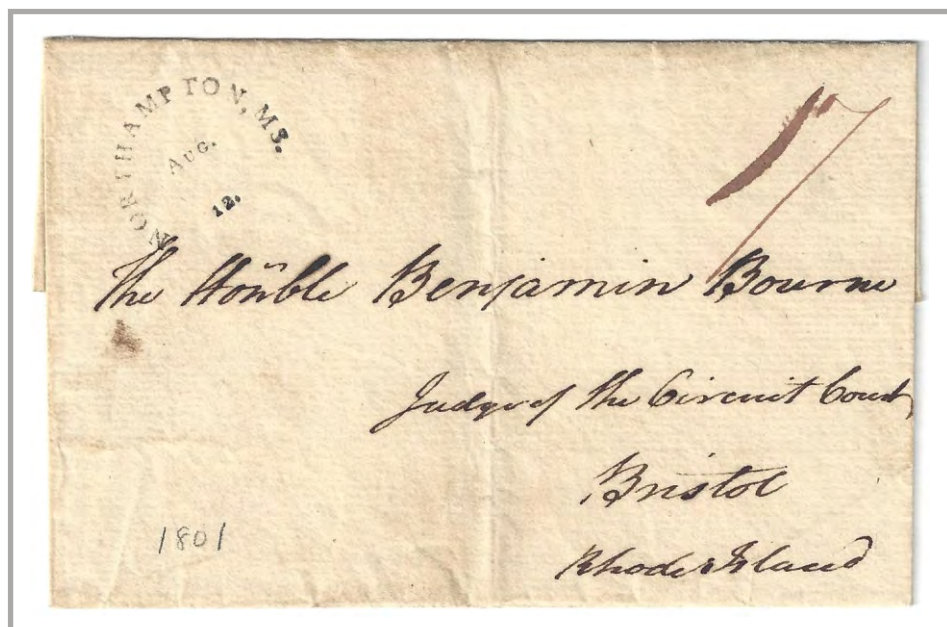 NORTHAMPTON, MS.
AUG.
12.
17
The Hon̄ble Benjamin Bourne
Judge of the Circuit Court
Bristol
Rhode Island
1801